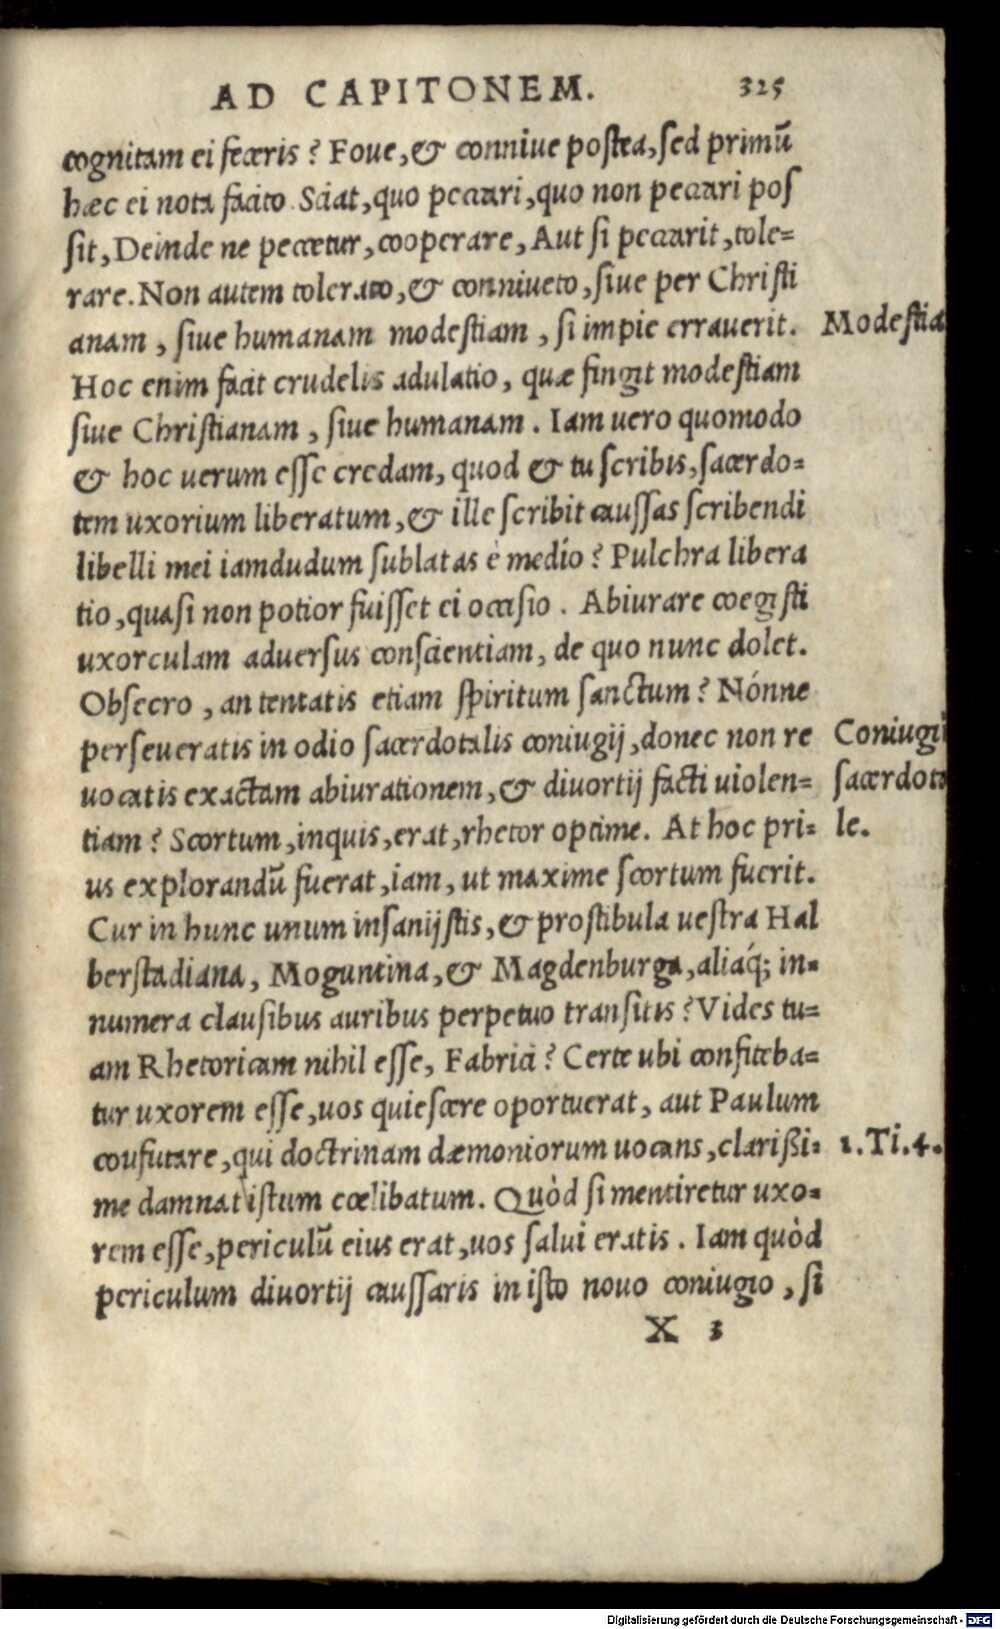 AD CAPITONEM. 325
cognitam ei feceris? Foue, & conniue postea, sed primū
hæc ei nota facito. Sciat, quo peccari, quo non peccari pos
sit, Deinde ne peccetur, cooperare, Aut si peccarit, tole=
rare. Non autem tolerato, & conniueto, siue per Christi
anam, siue humanam modestiam, si impie errauerit.
Modestia
Hoc enim facit crudelis adulatio, quæ fingit modestiam
siue Christianam, siue humanam. Iam uero quomodo
& hoc uerum esse credam, quod & tu scribis, sacerdo=
tem uxorium liberatum, & ille scribit caussas scribendi
libelli mei iamdudum sublatas è medio? Pulchra libera
tio, quasi non potior fuisset ei occasio. Abiurare coegisti
uxorculam aduersus conscientiam, de quo nunc dolet.
Obsecro, an tentatis etiam spiritum sanctum? Nónne
perseueratis in odio sacerdotalis coniugij, donec non re
uocatis exactam abiurationem, & diuortij facti uiolen=
tiam? Scortum, inquis, erat, rhetor optime. At hoc pri=
Coniugi
sacerdota
le.
us explorandū fuerat, iam, ut maxime scortum fuerit.
Cur in hunc unum insanijstis, & prostibula uestra Hal
berstadiana, Moguntina, & Magdenburga, aliaq́; in=
numera clausibus auribus perpetuo transitis? Vides tu=
am Rhetoricam nihil esse, Fabrici? Certe ubi confiteba=
tur uxorem esse, uos quiescere oportuerat, aut Paulum
coufutare, qui doctrinam dæmoniorum uocans, clarißi=
1. Ti. 4.
me damnat istum cœlibatum. Quòd si mentiretur uxo=
rem esse, periculū eius erat, uos salui eratis. Iam quòd
periculum diuortij caussaris in isto nouo coniugio, si
X 3
Digitalisierung gefördert durch die Deutsche Forschungsgemeinschaft - DFG